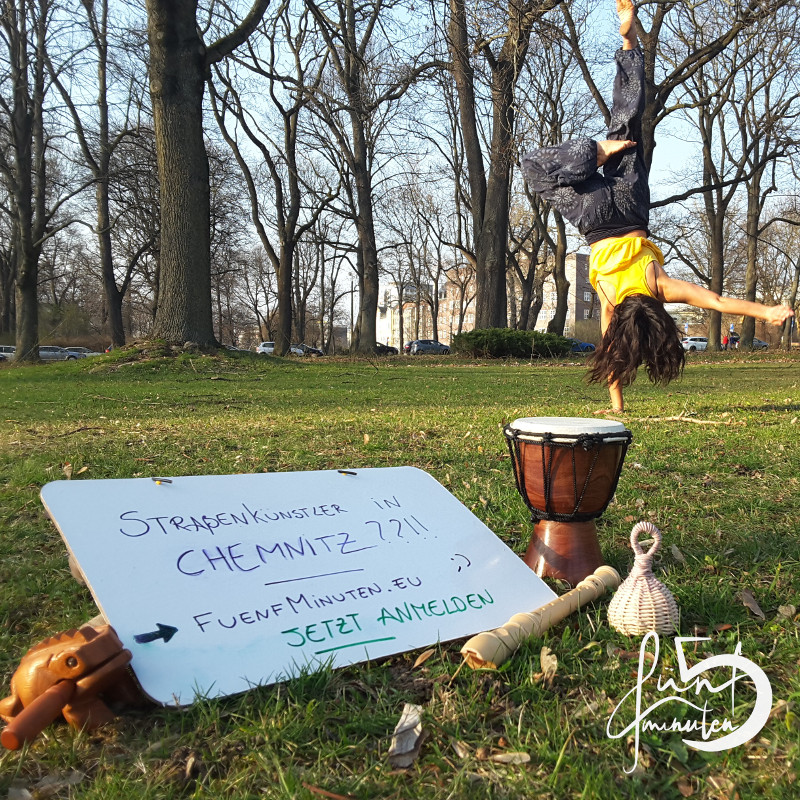 Straßenkünstler in
CHEMNITZ??!!
FuenfMinuten.eu ;)
JETZT ANMELDEN
fünf 5
minuten